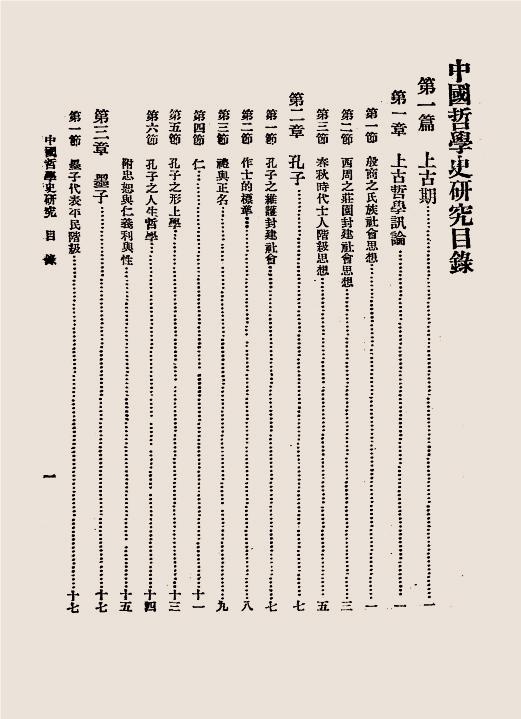 中國哲學史研究目錄
第一篇　上古期⋯⋯一
第一章　上古哲學訊論⋯⋯一
第一節　殷商之氏族社會思想⋯⋯一
第二節　西周之莊園封建社會思想⋯⋯三
第三節　春秋時代士人階級思想⋯⋯五
第二章　孔子⋯⋯七
第一節　孔子之維護封建社會⋯⋯七
第二節　作士的標準⋯⋯八
第三節　禮與正名⋯⋯九
第四節　仁⋯⋯十一
第五節　孔子之形上學⋯⋯十三
第六節　孔子之人生哲學⋯⋯十四
附忠恕與仁義利與性⋯⋯十五
第三章　墨子⋯⋯十七
第一節　墨子代表平民階級⋯⋯十七
中國哲學史研究　目錄　一